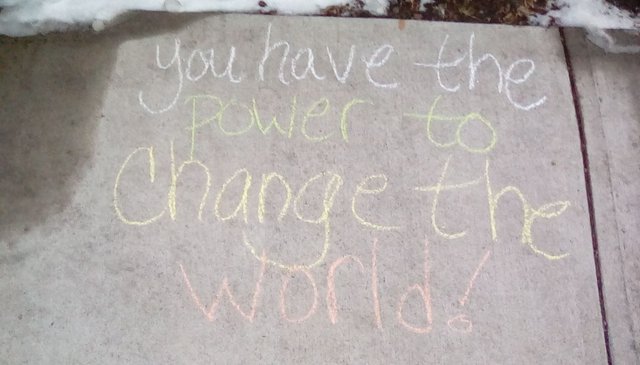 you have the
power to
Change the
world!